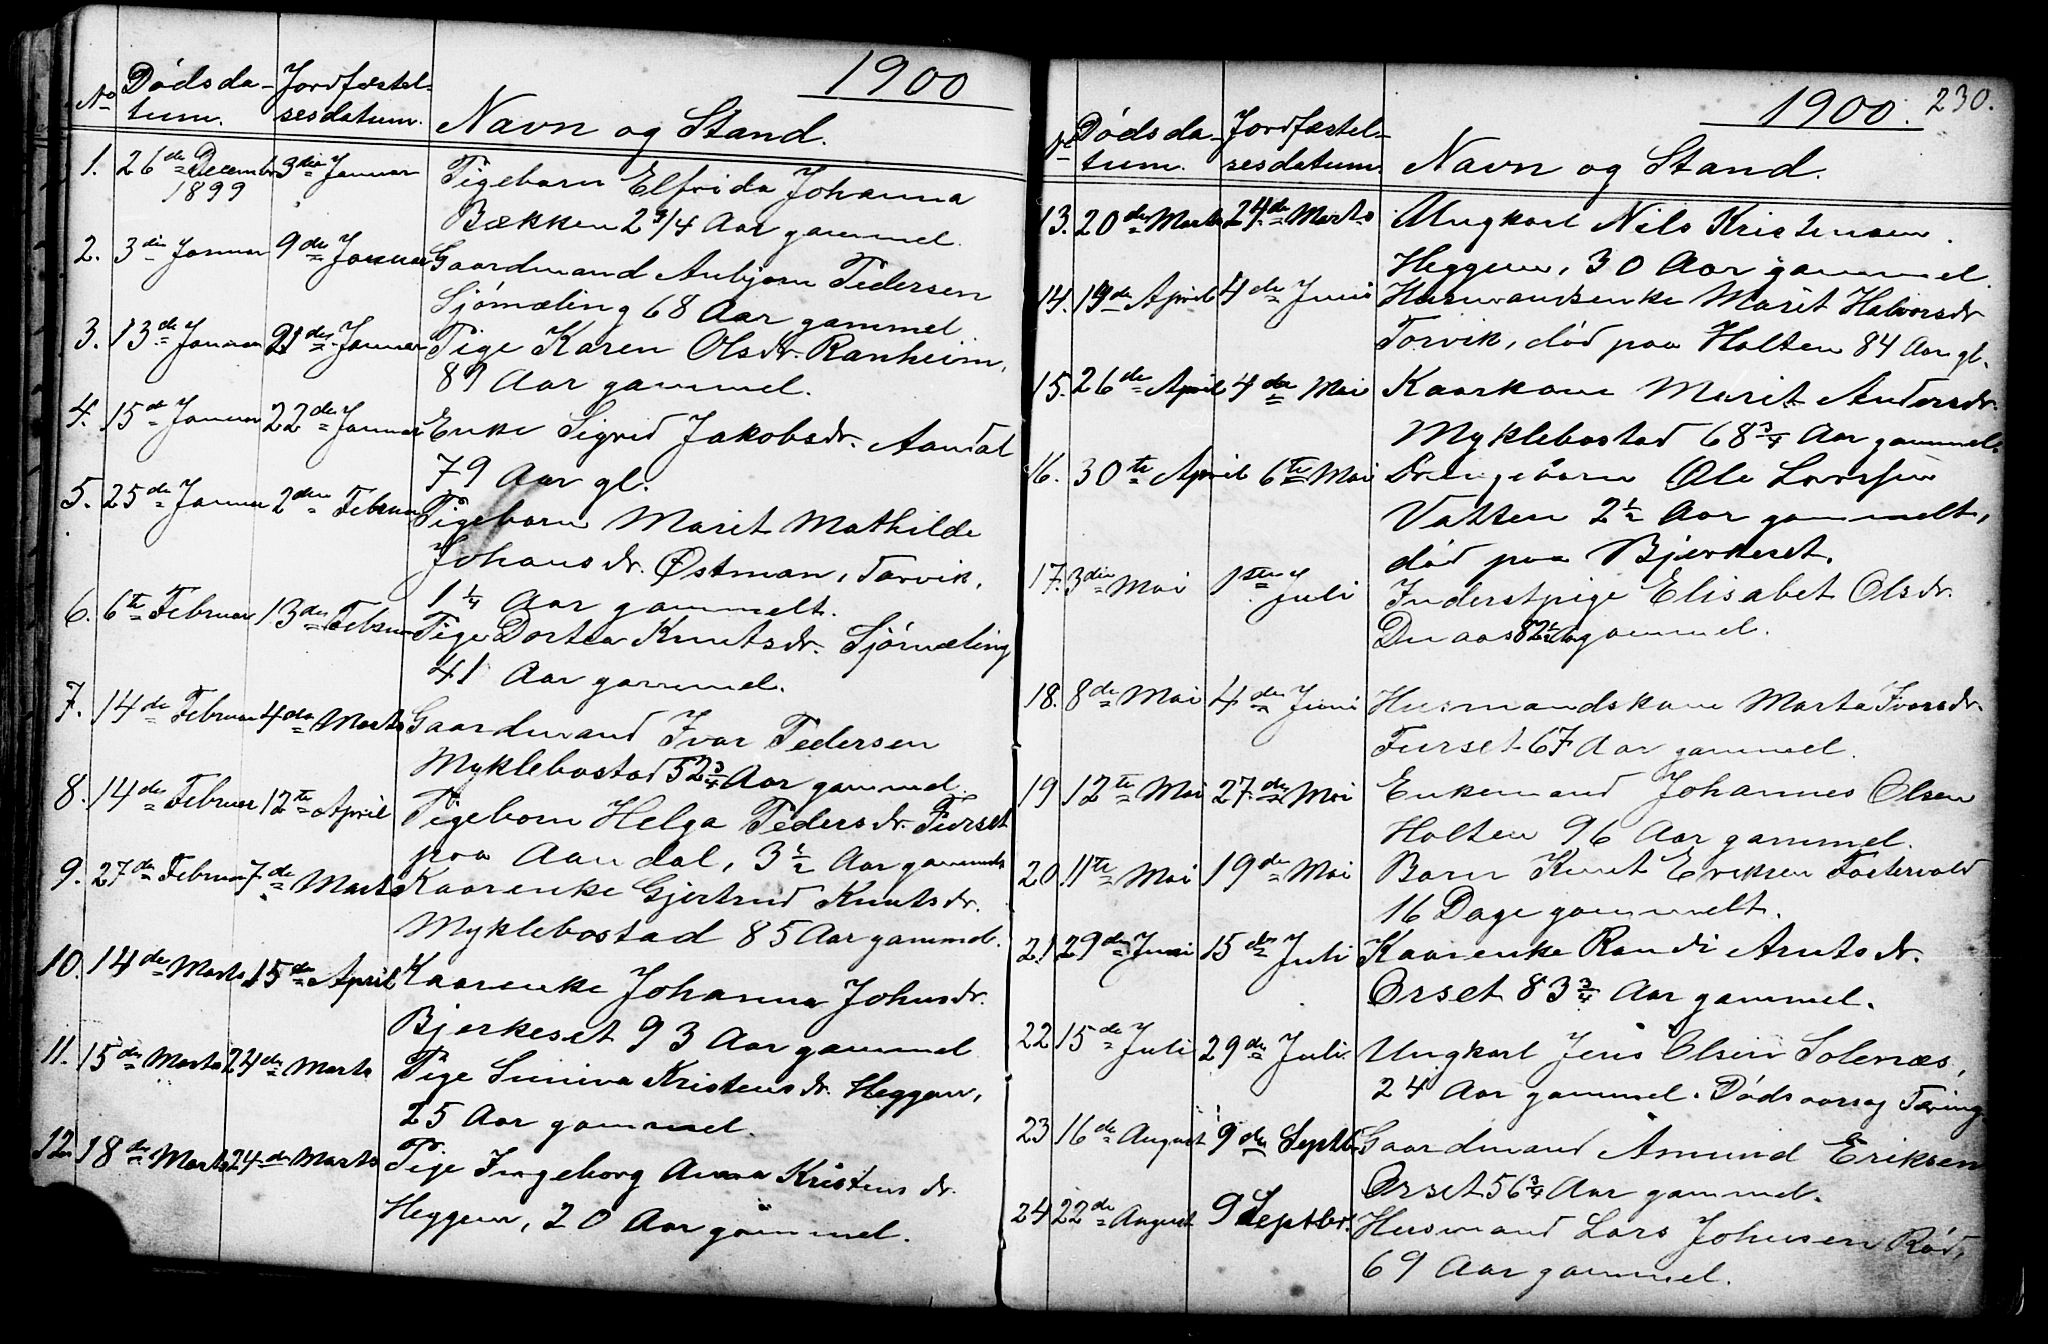 1900
No Dødsda- Jordfæstel-
tum. sesdatum. Navn og Stand.
1. 26de Decembr 3die Januar Pigebarn Elfrida Johanna
1899 Bækken 2 3/4 Aar gammel.
2. 3die Januar 9de Januar Gaardmand Anbjørn Pedersen
Sjømæling 68 Aar gammel
3. 13de Januar 21de Januar Pige Karen Olsdr. Ranheim,
89 Aar gammel.
4. 15de Januar 22de Januar Enke Sigrid Jakobsdr. Aandal
79 Aar gl.
5. 25de Januar 2den Februar Pigebarn Marit Mathilde
Johansdr. Østman, Torvik,
1 1/4 Aar gammelt.
6. 6te Februar 13de Februar Pige Dortea Knutsdr. Sjømæling
41 Aar gammel.
7. 14de Februar 4de Marts Gaardmand Ivar Pedersen
Myklebostad 52 3/4 Aar gammel.
8. 14de Februar 12te April Pigebarn Helga Pedersdr. Furset
paa Aandal, 3 1/2 Aar gammel
9. 27de Februar 7de Marts Kaarenke Gjertrud Knutsdr.
Myklebostad 85 Aar gammel.
10. 14de Marts 15de April Kaarenke Johanna Johnsdr.
Bjerkeset 93 Aar gammel
11. 15de Marts 24de Marts Pige Suniva Kristensdr. Heggem,
25 Aar gammel.
12. 18de Marts 24de Marts Pige Ingeborg Anna Kristensdr.
Heggem, 20 Aar gammel.
1900. 230.
No Dødsda- Jordfæstel-
tum. sesdatum. Navn og Stand.
13. 20de Marts 24de Marts Ungkarl Nils Kristensen
Heggem, 30 Aar gammel.
14. 19de April 4de Juni Husmandsenke Marit Halvorsdr
Torvik, død paa Holten 84 Aar gl.
15. 26de April 4de Mai Kaarkone Marit Andersdr.
Myklebostad 68 3/4 Aar gammel.
16. 30te April 6te Mai Drengebarn Ole Larssen
Vatten 2 1/2 Aar gammelt,
død paa Bjerkeset.
17. 3die Mai 1ste Juli Inderstpige Elisabet Olsdr.
Duaas 82 1/2 Aar gammel.
18. 8de Mai 4de Juni Husmandskone Marta Ivarsdr.
Furset 67 Aar gammel.
19 12te Mai 27de Mai Enkemand Johannes Olsen
Holten 96 Aar gammel.
20. 11te Mai 19de Mai Barn Knut Eriksen Fostervold
16 Dage gammelt.
21 29de Juni 15de Juli Kaarenke Randi Arntsdr.
Orset 83 3/4 Aar gammel.
22 15de Juli 29de Juli Ungkarl Jens Olsen Solenæs,
24 Aar gammel. Dødsaarsag Tæring
23 16de August 9de Septbr. Gaardmand Amund Eriksen
Orset 56 3/4 Aar gammel.
24 22de August 9 Septbr. Husmand Lars Johnsen Rød,
69 Aar gammel.